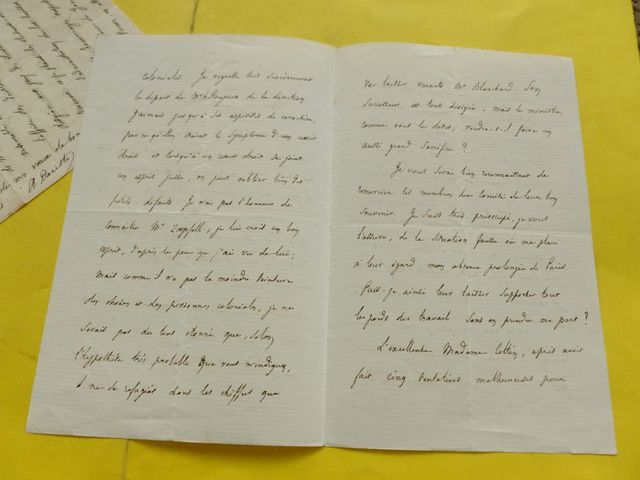 coloniales. Je regrette bien sincèrement
le départ de Mr de la direction
J'aimais jusqu'à ses aspérités de caractère,
parce qu'elles étaient le symptome d'un cœur
droit et lorsqu'à un cœur droit se joint
un esprit juste, on peut oublier bien des
petits défauts. Je n'ai pas l'honneur de
connaître Mr Zoepffell, je lui crois un bon
esprit, d'après le peu que j'ai vu de lui;
mais comme il n'a pas la moindre teinture
des choses et des personnes coloniales, je ne
serais pas du tout étonné que, selon
l'hypothèse très probable que vous m'indiquez,
il ne se refugiât dans les chiffres que
va laisser vacants Mr Blanchard. Son
successeur est tout désigné; mais le ministre,
comme vont les dettes, voudra-t-il faire un
aussi grand sacrifice ?
Je vous serai bien reconnaissant de
remercier les membres du Comité de leur bon
souvenir. Je suis très préoccupé, je vous
l'assure, de la situation fausse où me place
à leur égard mon absence prolongée de Paris.
Puis-je ainsi leur laisser supporter tout
le poids des travail sans en prendre ma part ?
L'excellente Madame Cottin, après avoir
fait cinq tentatives malheureuses pour